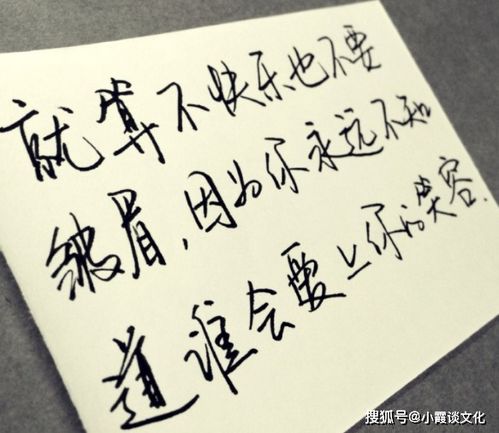 就算不快乐也不要
皱眉,因为你永远不知
道谁会爱上你的笑容.
搜狐号@小霞谈文化